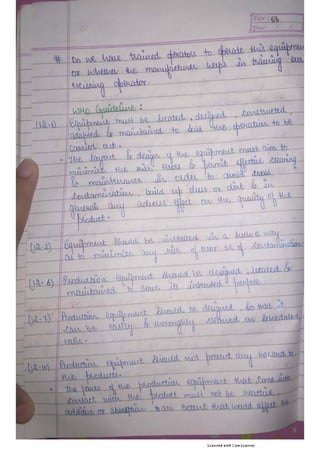 Page: 63
Date: / /
# Do we have trained operators to operate this equipment
or whether the manufacturer helps in training our
existing operator.
WHO Guideline :
(12.1) Equipment must be located, designed, constructed,
adapted & maintained to suit the operation to be
carried out.
• The layout & design of the equipment must aim to
minimise the risk errors & permit effective cleaning
& maintenance in order to avoid cross
contamination, build up dust or dirt & in
general any adverse effect on the quality of the
product.
(12.2) Equipment should be installed in a such a way
as to minimize any risk of error or of contamination.
(12.6) Production equipment should be designed, located &
maintained to serve its intended purpose.
(12.7) Production equipment should be designed, so that it
can be easily & thoroughly cleaned on scheduled
(12.10) Production equipment should not present any hazard to
the products.
• The parts of the production equipment that come into
contact with the product must not be reactive,
additive or absorption to an extent that would affect the
Scanned with CamScanner